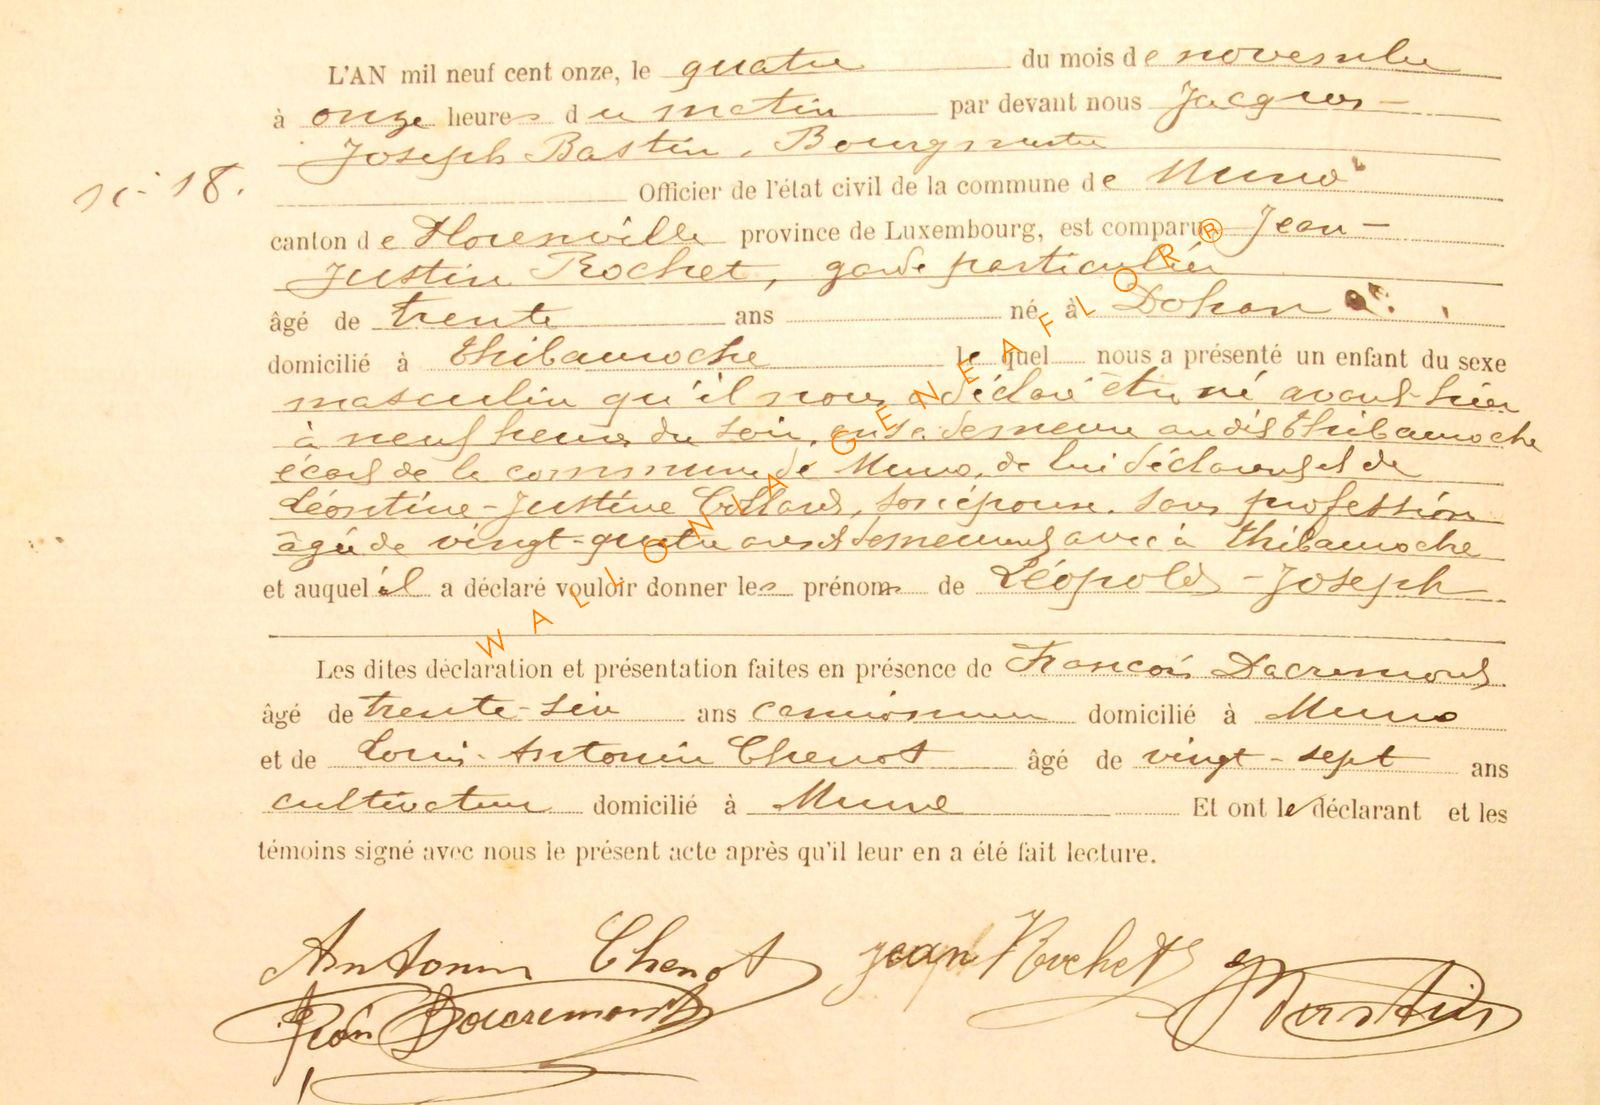 L'AN mil neuf cent onze, le quatre du mois de novembre
à onze heures du matin par devant nous Jacques
Joseph Bastin, Bourgmestre
n° 18.
Officier de l'état civil de la commune de Muno
canton de Florenville province de Luxembourg, est comparu Jean
Justin Rochet, garde particulier
âgé de trente ans né à Dohan
domicilié à Thibauroche lequel nous a présenté un enfant du sexe
masculin qu'il nous a déclaré être né avant-hier
à neuf heures du soir, en sa demeure audit Thibauroche
écart de la commune de Muno, de lui déclarant et de
Léontine-Justine Collard, son épouse, sans profession
âgée de vingt-quatre ans et demeurant avec à Thibauroche
et auquel il a déclaré vouloir donner les prénoms de Léopold-Joseph
Les dites déclaration et présentation faites en présence de François Dacremont
âgé de trente-six ans camionneur domicilié à Muno
et de Louis-Antonin Chenot âgé de vingt-sept ans
cultivateur domicilié à Muno Et ont le déclarant et les
témoins signé avec nous le présent acte après qu'il leur en a été fait lecture.
Antonin Chenot jean Rochet Bastin
Dacremont
WALLONIA GENEAFLOR ®